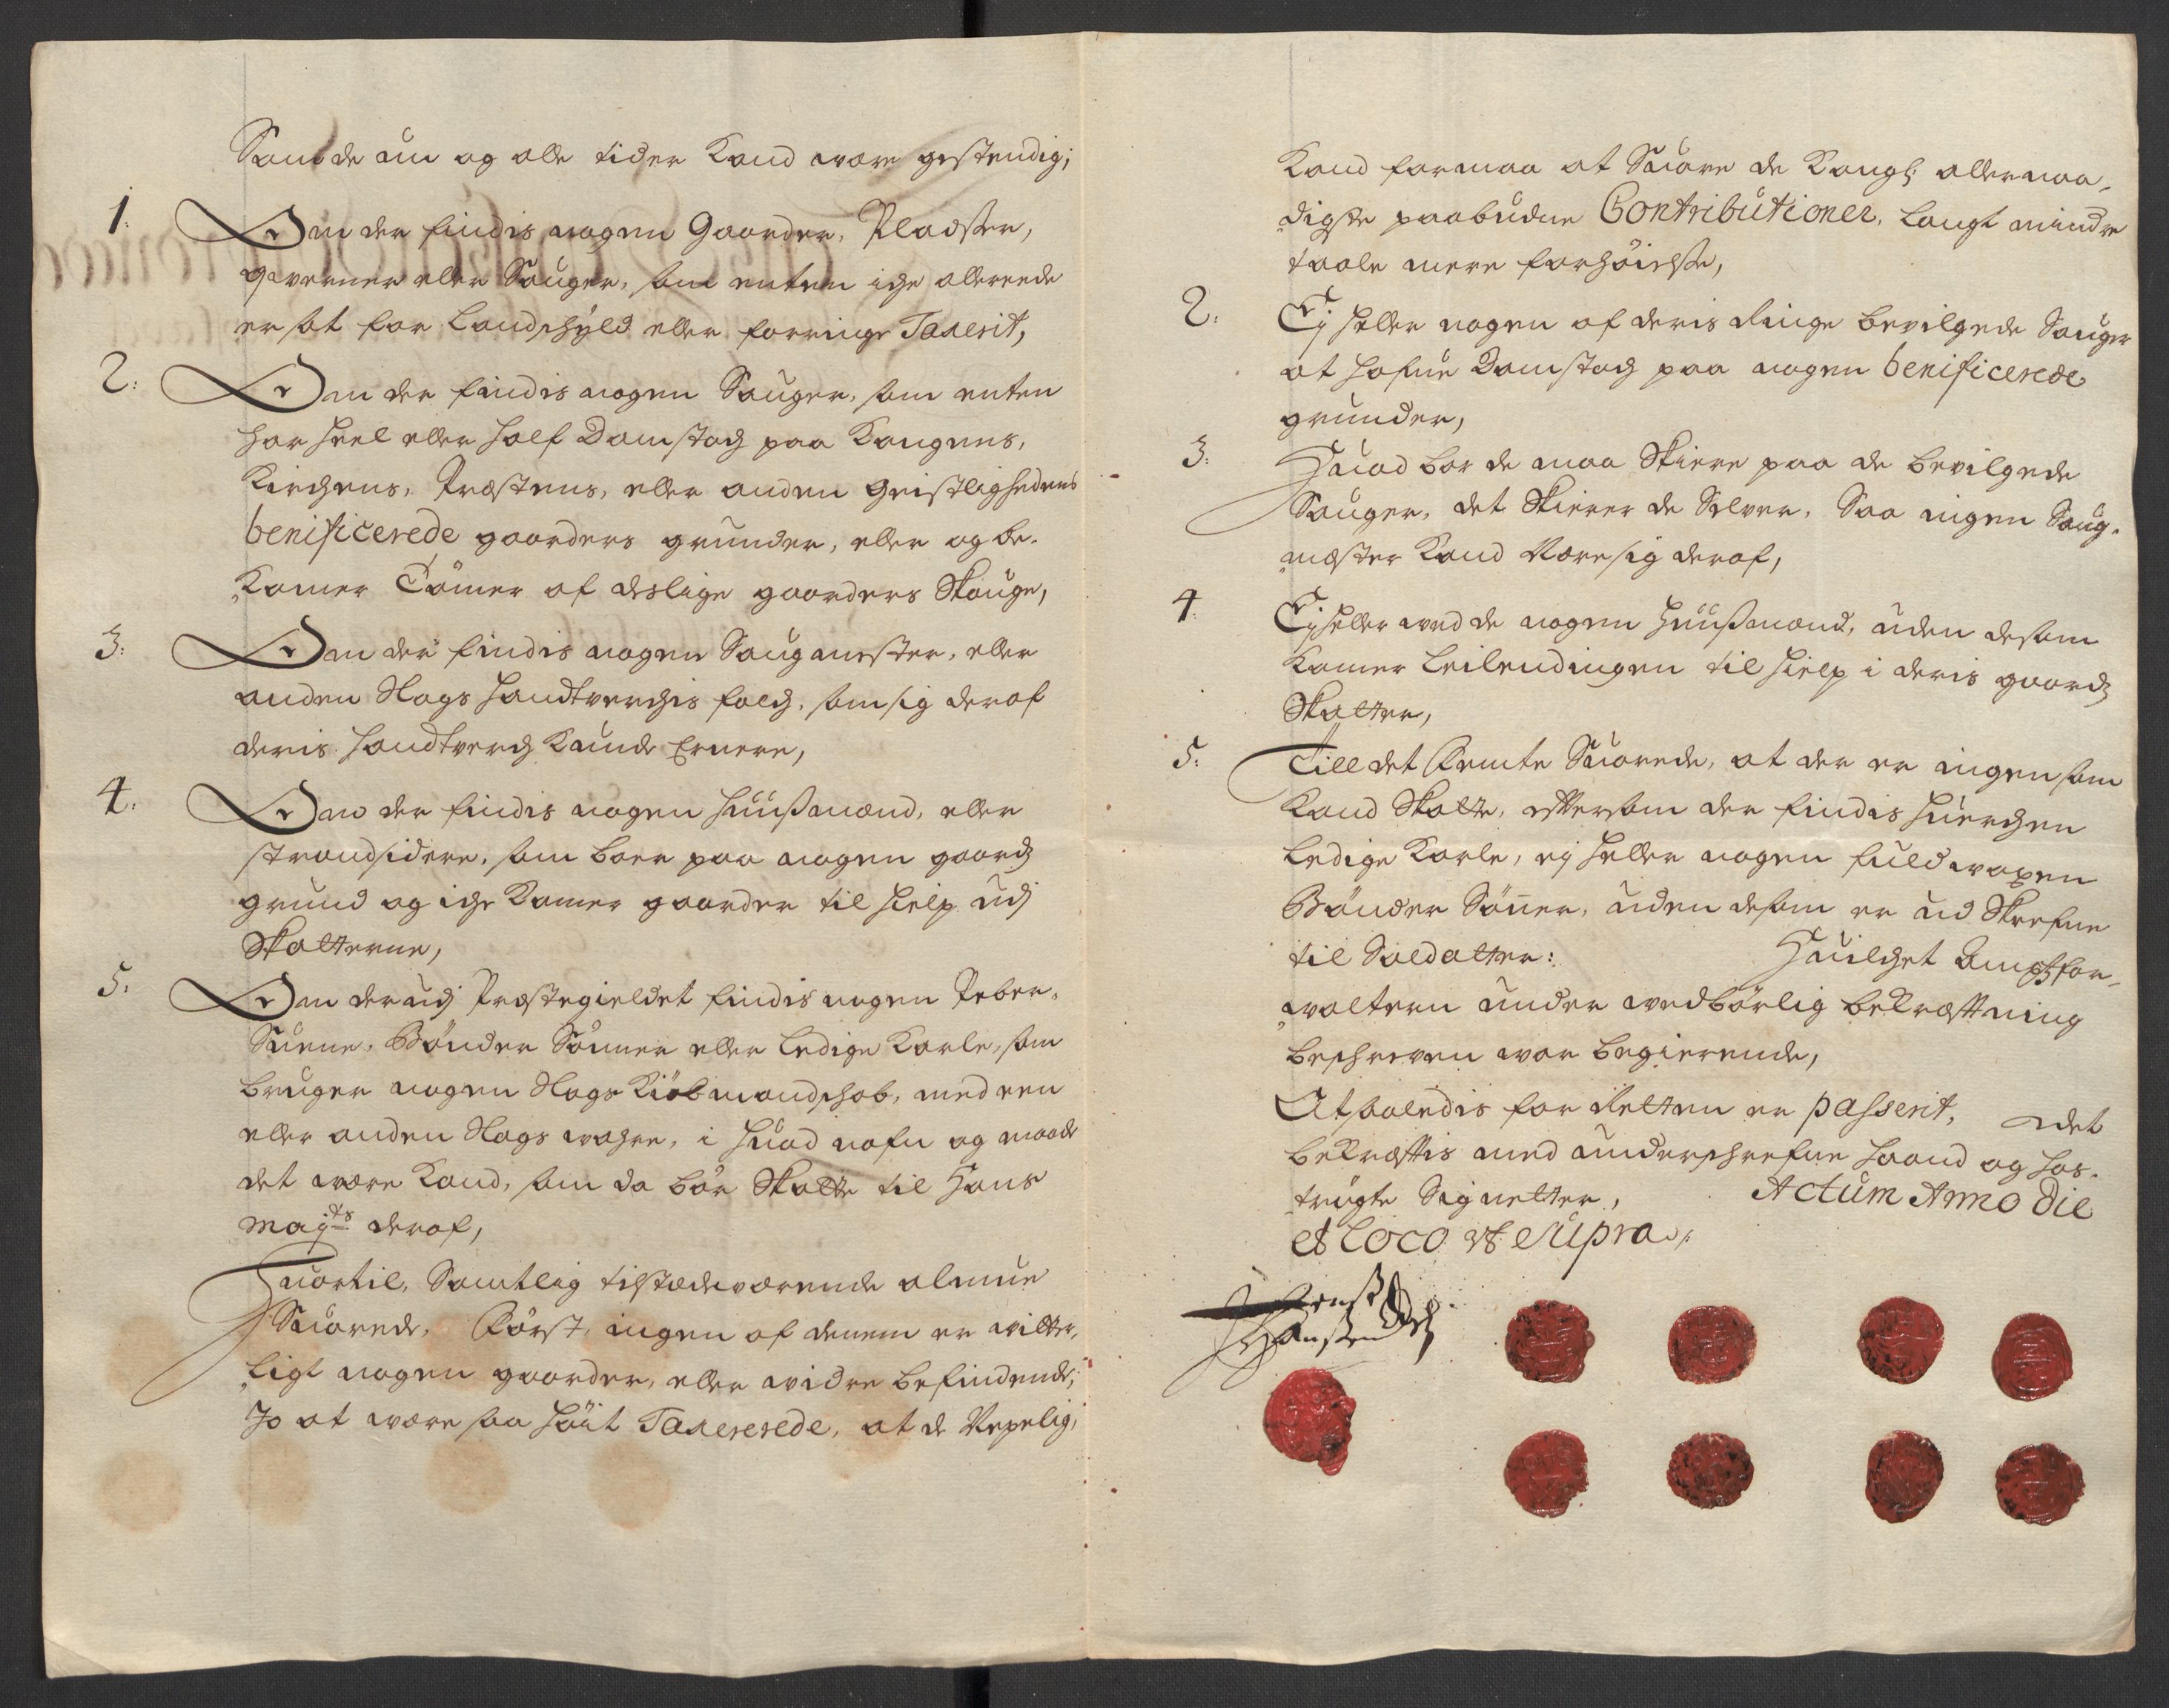 Som de nu og alle tider kand være gestendig;
1. Om der findis nogen Gaarder, Pladser,
qverner eller Sauger, som enten iche allerede
er sat for Landschyld eller forringe Taxerit,
2: Om der findis nogen Sauger, som enten
har heel eller half Damstoch paa Kongens,
Kirchens, Præstens, eller anden Geistlighedens
benificerede gaarders grunder, eller og be-
„komer Tømer af deslige gaarders Skouge,
3: Om der findis nogen Saugmester, eller
anden Slags Handtverchis folch, som sig deraf
deris Handtverch kunde Ernere,
4: Om der findis nogen Huusmænd, eller
strandsidere, som boer paa nogen gaardz
grund og iche komer gaarder til hielp udj
Skatterne,
5: Om der udj Præstegieldet findis nogen Peber-
Suene, Bønder Sønner eller Ledige Karle, som
bruger nogen Slags Kiøbmandschab, med een
eller anden Slags wahre, i huad nafn og maade
det være kand, som da bør Skatte til Hans
Majts deraf,
Huortil, Samtlig tilstædeværende almue
Suarede, Først, ingen af dennem er vitter-
„ligt nogen gaarder, eller widre befindende,
Jo at være saa høit Taxererede, at de Neppelig,
Kand formaa at Suare de Kongl: allernaa-
„digste paabudne Contributioner, langt mindre
taale mere forhøielse,
2: Ej heller nogen af deris Ringe bevilgede Sauger
at hafue Damstoch paa nogen benificerede
grunder,
3: Huad bor de maa Skiere paa de bevilgede
Sauger, det Skierer de Selver, Saa ingen Saug-
„mester kand Nære sig deraf,
4: Ej heller ved de nogen Huusmænd, uden de som
komer Leilendingen til hielp i deris gaardz
Skatter,
5: Till det Femte Suarede, at der er ingen som
kand Skatte, eftersom der findis huerchen
Ledige Karle, ej heller nogen fuldvoxen
Bønder Sønner, uden de som er ud Skrefne
til Soldatter: Huilchet Amptsfor-
„valteren under vedbørlig bekræftning
beschreven var begierende,
At saaledis for Retten er passerit, det
bekræftis med underschrefne haand og hos-
trögte Signetter, Actum Anno Die
et Loco ut Supra